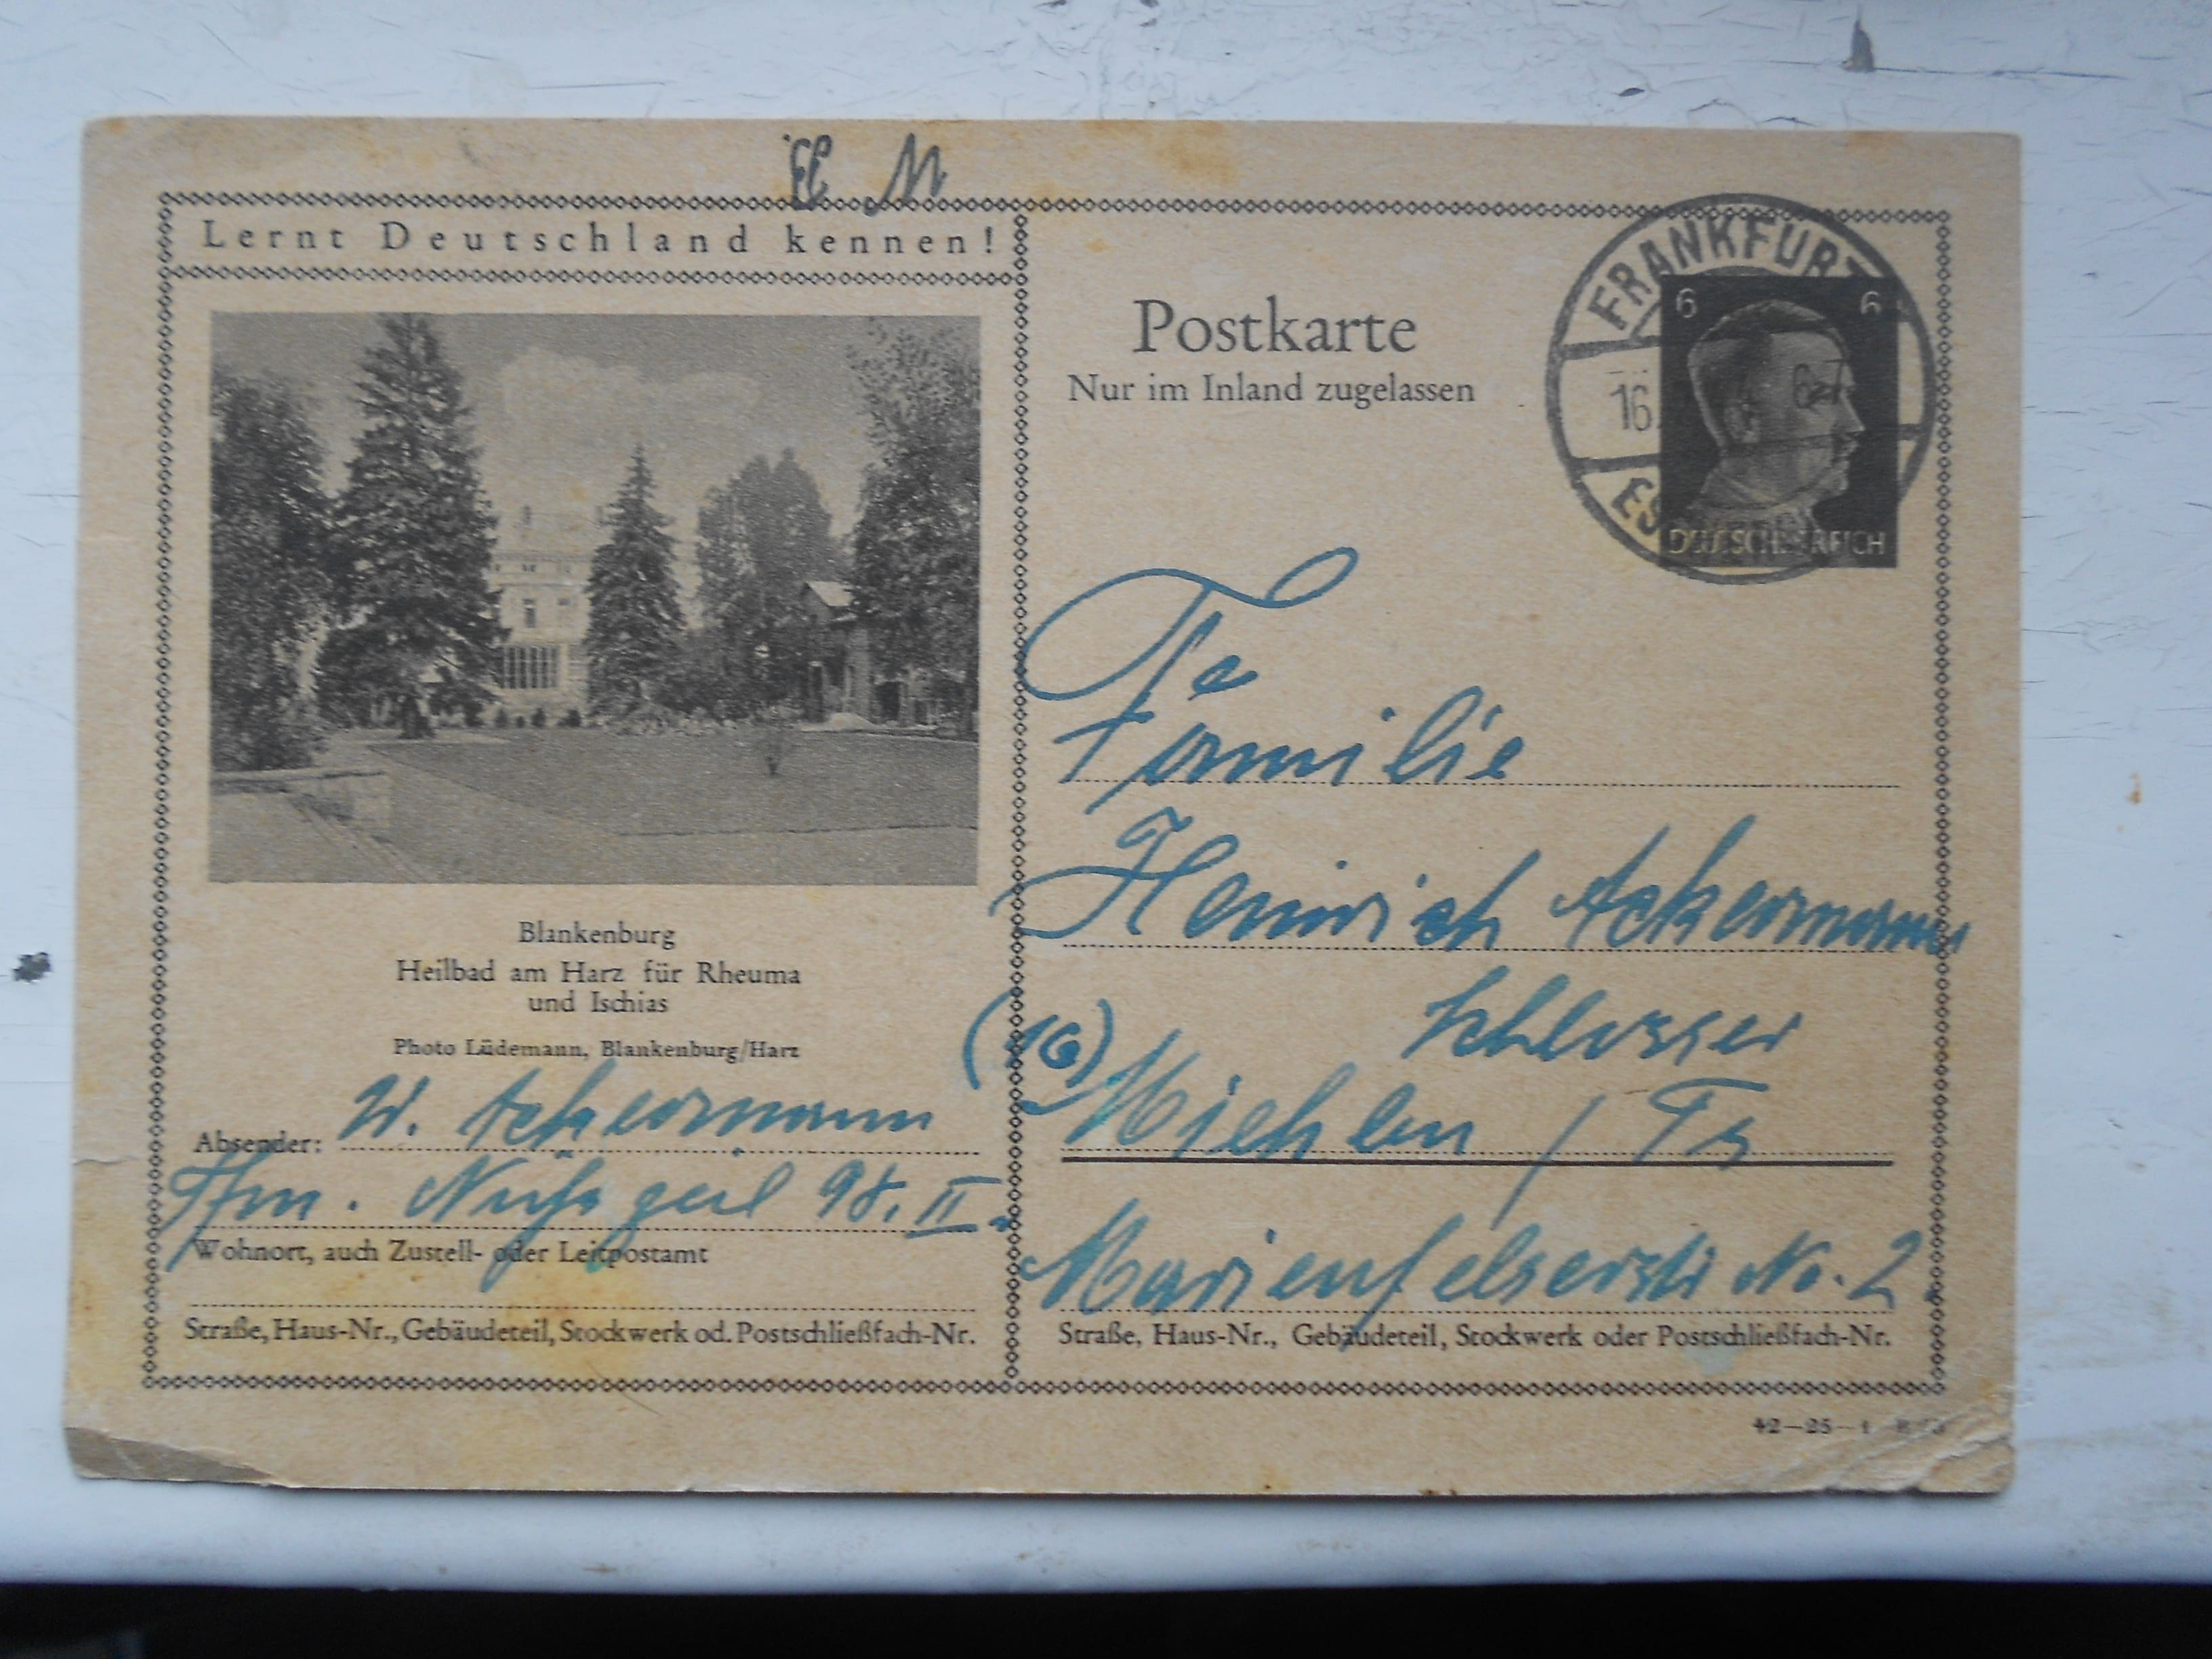 Lernt Deutschland kennen!
Blankenburg
Heilbad am Harz für Rheuma
und Ischias
Photo Lüdemann, Blankenburg/Harz
Absender: W. Ackermann
Ffm. 98. II.
Wohnort, auch Zustell- oder Leitpostamt
Straße, Haus-Nr., Gebäudeteil, Stockwerk od. Postschließfach-Nr.
Postkarte
Nur im Inland zugelassen
FRANKFURT
6 6
16.
DEUTSCHES REICH
Fa
Familie
Heinrich Ackermann
Schlosser
(16) Miehlen / Ts
Marienfelserstr No. 2
Straße, Haus-Nr., Gebäudeteil, Stockwerk oder Postschließfach-Nr.
42-25-1